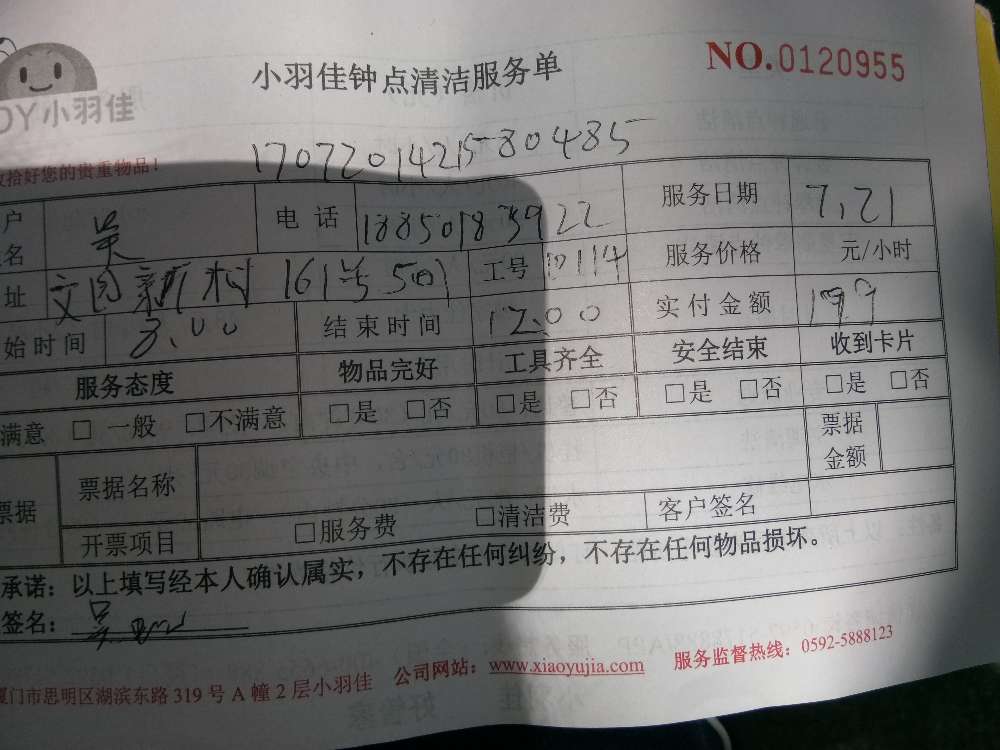 小羽佳钟点清洁服务单 NO.0120955
OY小羽佳
1707201421580485
收拾好您的贵重物品!
户名 吴 电话 18850183922 服务日期 7.21
址 文园新村 161号501 工号 10114 服务价格 元/小时
始时间 8.00 结束时间 12.00 实付金额 199
服务态度 物品完好 工具齐全 安全结束 收到卡片
满意 □ 一般 □不满意 □是 □否 □是 □否 □是 □否 □是 □否
票据 票据名称 票据金额
开票项目 □服务费 □清洁费 客户签名
承诺：以上填写经本人确认属实，不存在任何纠纷，不存在任何物品损坏。
签名： 吴
厦门市思明区湖滨东路 319 号 A 幢 2 层小羽佳 公司网站：www.xiaoyujia.com 服务监督热线：0592-5888123